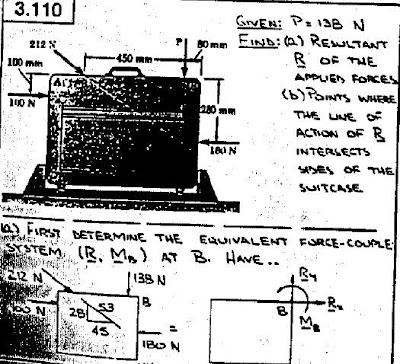 3.110
GIVEN: P = 138 N
FIND: (a) RESULTANT
R OF THE
APPLIED FORCES
(b) POINTS WHERE
THE LINE OF
ACTION OF R
INTERSECTS
SIDES OF THE
SUITCASE
212 N
P
80 mm
450 mm
100 mm
A
100 N
280 mm
180 N
(a) FIRST DETERMINE THE EQUIVALENT FORCE-COUPLE
SYSTEM (R, M_B) AT B. HAVE..
212 N
138 N
B
100 N
28
53
45
=
180 N
R_y
B
R_x
M_B